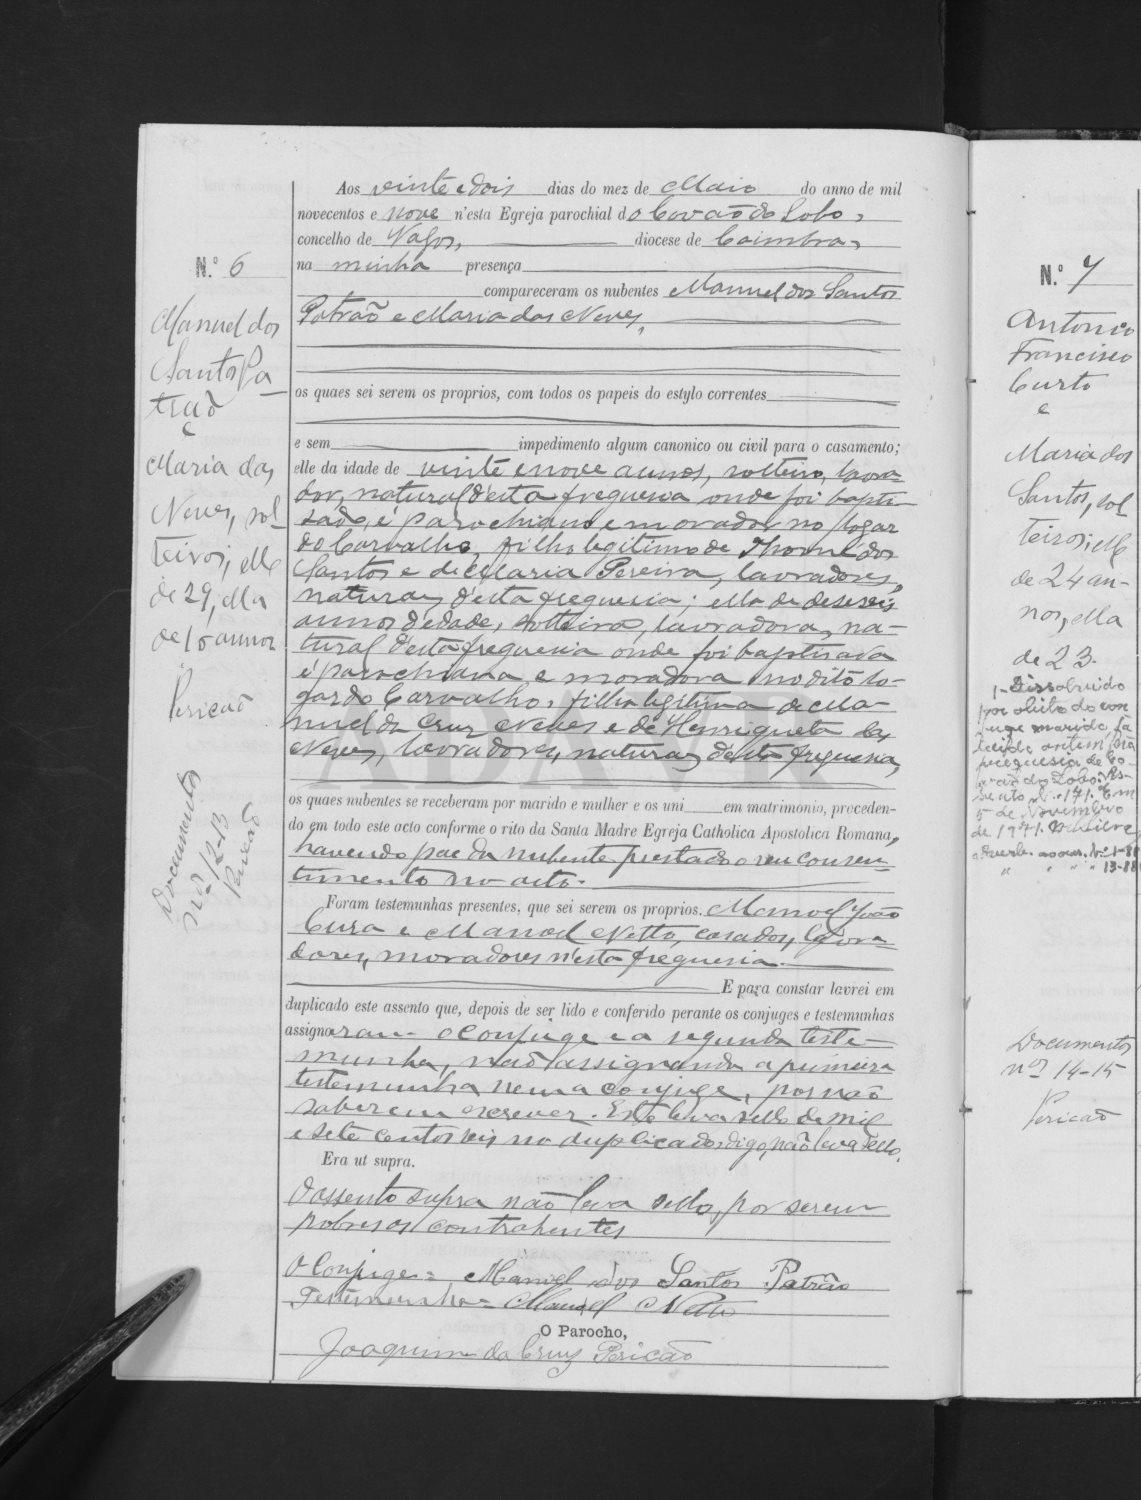 N.º 6
Manuel dos
Santos Pa-
trão
e
Maria das
Neves, sol-
teiros; elle
de 29, ella
de 16 annos
Pericão
Documentos
nos 12-13
Pericão
Aos vinte e dois dias do mez de Maio do anno de mil
novecentos e nove n'esta Egreja parochial do Covão do Lobo,
concelho de Vagos, diocese de Coimbra,
na minha presença
compareceram os nubentes Manuel dos Santos
Patrão e Maria das Neves,
os quaes sei serem os proprios, com todos os papeis do estylo correntes
e sem impedimento algum canonico ou civil para o casamento;
elle da idade de vinte e nove annos, solteiro, lavra-
dor, natural d'esta freguesia onde foi bapti-
sado, é parochiano e morador no logar
do Carvalho, filho legitimo de Thomé dos
Santos e de Maria Pereira, lavradores,
naturaes d'esta freguesia; ella de deseseis
annos d'edade, solteira, lavradora, na-
tural d'esta freguesia onde foi baptisada
é parochiana e moradora no dito lo-
gar do Carvalho, filha legitima de Ma-
nuel da Cruz Neves e de Henriqueta das
Neves, lavradores, naturaes desta freguesia,
os quaes nubentes se receberam por marido e mulher e os uni em matrimonio, proceden-
do em todo este acto conforme o rito da Santa Madre Egreja Catholica Apostolica Romana,
havendo o pae da nubente prestado o seu consen-
timento no acto.
Foram testemunhas presentes, que sei serem os proprios, Manoel João
Cura e Manoel Netto, casados, lavra-
dores, moradores n'esta freguesia.
E para constar lavrei em
duplicado este assento que, depois de ser lido e conferido perante os conjuges e testemunhas
assignaram o conjuge e a segunda teste-
munha, não assignando a primeira
testemunha nem a conjuge, por não
saberem escrever. Este leva sello de mil
e sete centos reis no duplicado, digo, não leva sello.
Era ut supra.
O assento supra não leva sello, por serem
pobres os contrahentes
O Conjuge = Manoel dos Santos Patrão
Testemunha = Manoel Netto
O Parocho,
Joaquim da Cruz Pericão
ADAVR
N.º 7
Antonio
Francisco
Curto
e
Maria dos
Santos, sol-
teiros; elle
de 24 an-
nos, ella
de 23.
1-Dissolvido
por obito do con-
juge marido, fa-
lecido ontem na
freguesia de Co-
vão do Lobo. As-
sento N.º 171. Em
5 de Novembro
de 1971.
Documentos
nos 14-15
Pericão